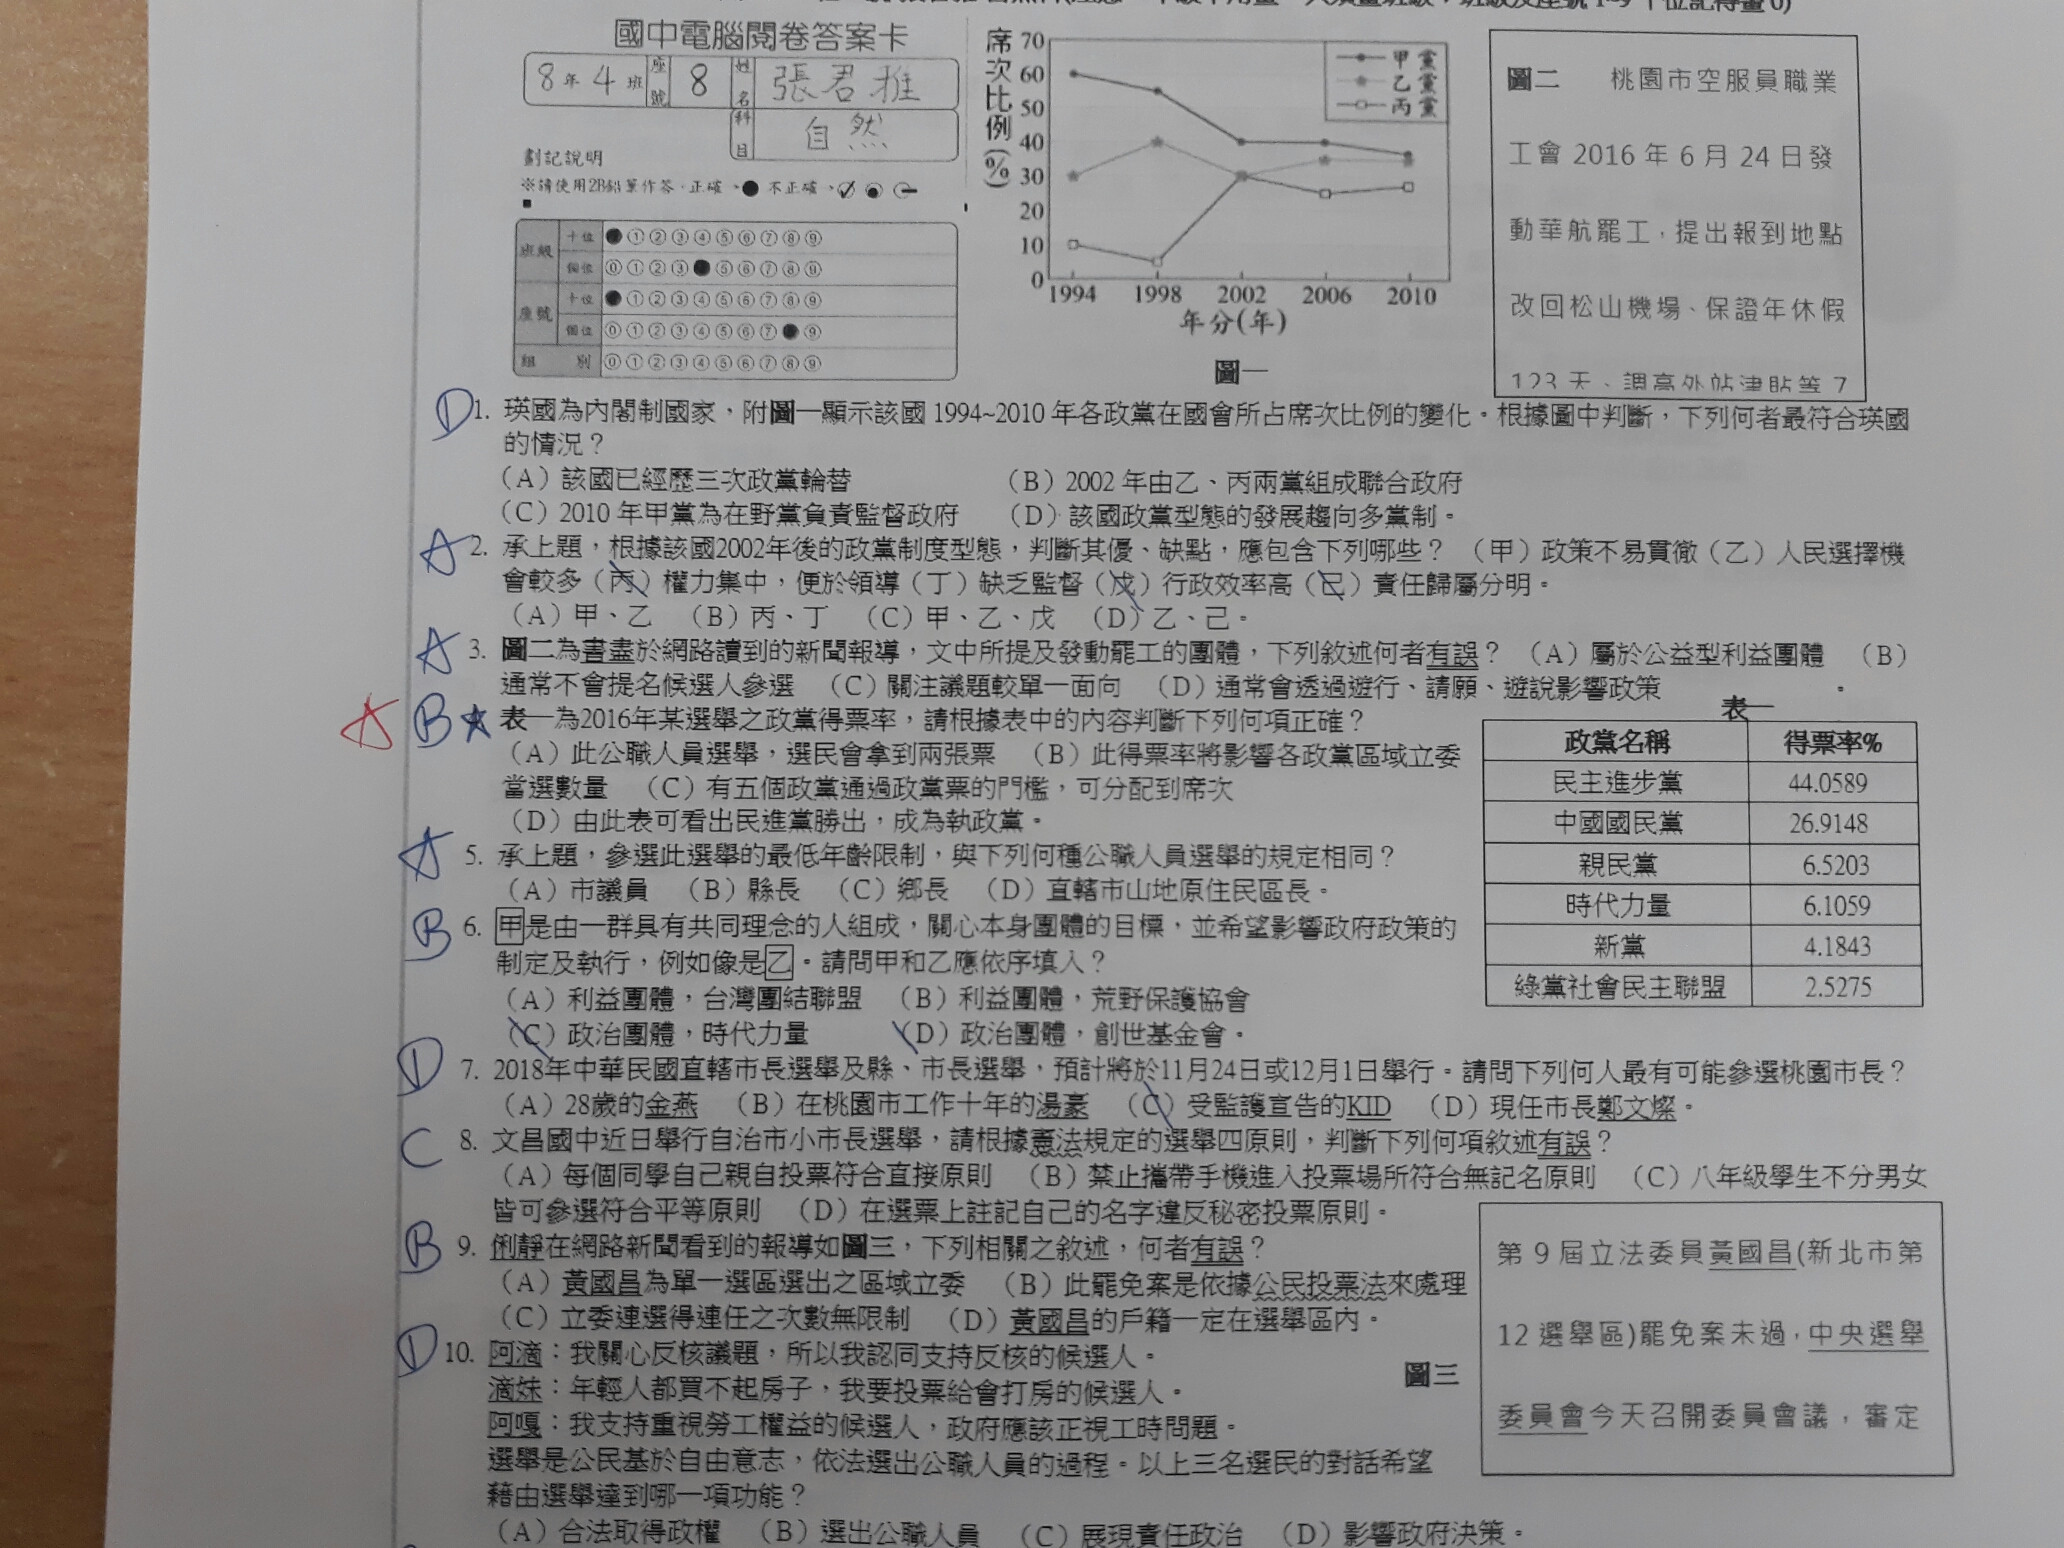 國中電腦閱卷答案卡
8年4班 座號 8 姓名 張君雅
科目 自然
劃記說明
※請使用2B鉛筆作答.正確、● 不正確、
班級 十位 ①②③④⑤⑥⑦⑧⑨
個位 ⓪①②③⑤⑥⑦⑧⑨
座號 十位 ①②③④⑤⑥⑦⑧⑨
個位 ⓪①②③④⑤⑥⑦⑨
組別 ⓪①②③④⑤⑥⑦⑧⑨
席次比例(%)
70
60
50
40
30
20
10
0
甲黨
乙黨
丙黨
1994 1998 2002 2006 2010
年分(年)
圖一
圖二 桃園市空服員職業
工會 2016 年 6 月 24 日發
動華航罷工，提出報到地點
改回松山機場、保證年休假
123 天、調高外站津貼等 7
D 1. 瑛國為內閣制國家，附圖一顯示該國 1994~2010 年各政黨在國會所占席次比例的變化。根據圖中判斷，下列何者最符合瑛國
的情況？
（A）該國已經歷三次政黨輪替 （B）2002 年由乙、丙兩黨組成聯合政府
（C）2010 年甲黨為在野黨負責監督政府 （D）該國政黨型態的發展趨向多黨制。
A 2. 承上題，根據該國2002年後的政黨制度型態，判斷其優、缺點，應包含下列哪些？（甲）政策不易貫徹（乙）人民選擇機
會較多（丙）權力集中，便於領導（丁）缺乏監督（戊）行政效率高（己）責任歸屬分明。
（A）甲、乙 （B）丙、丁 （C）甲、乙、戊 （D）乙、己。
A 3. 圖二為書盡於網路讀到的新聞報導，文中所提及發動罷工的團體，下列敘述何者有誤？（A）屬於公益型利益團體 （B）
通常不會提名候選人參選 （C）關注議題較單一面向 （D）通常會透過遊行、請願、遊說影響政策
A B ★ 表一為2016年某選舉之政黨得票率，請根據表中的內容判斷下列何項正確？
（A）此公職人員選舉，選民會拿到兩張票 （B）此得票率將影響各政黨區域立委
當選數量 （C）有五個政黨通過政黨票的門檻，可分配到席次
（D）由此表可看出民進黨勝出，成為執政黨。
表一
政黨名稱 得票率%
民主進步黨 44.0589
中國國民黨 26.9148
親民黨 6.5203
時代力量 6.1059
新黨 4.1843
綠黨社會民主聯盟 2.5275
A 5. 承上題，參選此選舉的最低年齡限制，與下列何種公職人員選舉的規定相同？
（A）市議員 （B）縣長 （C）鄉長 （D）直轄市山地原住民區長。
B 6. 甲是由一群具有共同理念的人組成，關心本身團體的目標，並希望影響政府政策的
制定及執行，例如像是乙。請問甲和乙應依序填入？
（A）利益團體，台灣團結聯盟 （B）利益團體，荒野保護協會
（C）政治團體，時代力量 （D）政治團體，創世基金會。
D 7. 2018年中華民國直轄市長選舉及縣、市長選舉，預計將於11月24日或12月1日舉行。請問下列何人最有可能參選桃園市長？
（A）28歲的金燕 （B）在桃園市工作十年的湯豪 （C）受監護宣告的KID （D）現任市長鄭文燦。
C 8. 文昌國中近日舉行自治市小市長選舉，請根據憲法規定的選舉四原則，判斷下列何項敘述有誤？
（A）每個同學自己親自投票符合直接原則 （B）禁止攜帶手機進入投票場所符合無記名原則 （C）八年級學生不分男女
皆可參選符合平等原則 （D）在選票上註記自己的名字違反秘密投票原則。
B 9. 俐靜在網路新聞看到的報導如圖三，下列相關之敘述，何者有誤？
（A）黃國昌為單一選區選出之區域立委 （B）此罷免案是依據公民投票法來處理
（C）立委連選得連任之次數無限制 （D）黃國昌的戶籍一定在選舉區內。
圖三
第 9 屆立法委員黃國昌(新北市第
12 選舉區)罷免案未過，中央選舉
委員會今天召開委員會議，審定
D 10. 阿滴：我關心反核議題，所以我認同支持反核的候選人。
滴妹：年輕人都買不起房子，我要投票給會打房的候選人。
阿嘎：我支持重視勞工權益的候選人，政府應該正視工時問題。
選舉是公民基於自由意志，依法選出公職人員的過程。以上三名選民的對話希望
藉由選舉達到哪一項功能？
（A）合法取得政權 （B）選出公職人員 （C）展現責任政治 （D）影響政府決策。